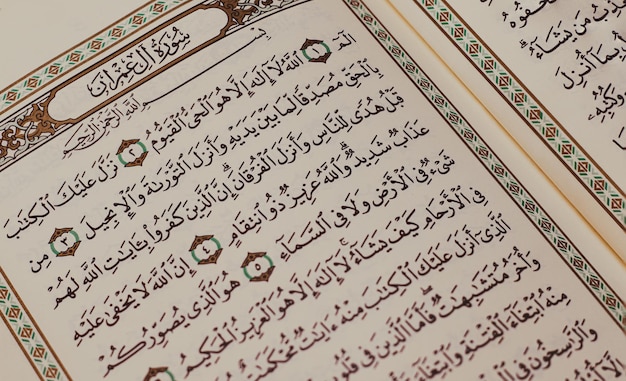 مَن يَشَآءُ
بِمَآ أُنزِلَ
وَكُتُبِهِ
سُورَةُ آلِ عِمْرَانَ
بِسْمِ ٱللَّهِ ٱلرَّحْمَٰنِ ٱلرَّحِيمِ
الٓمٓ ١ ٱللَّهُ لَآ إِلَٰهَ إِلَّا هُوَ ٱلْحَىُّ ٱلْقَيُّومُ ٢ نَزَّلَ عَلَيْكَ ٱلْكِتَٰبَ
بِٱلْحَقِّ مُصَدِّقًا لِّمَا بَيْنَ يَدَيْهِ وَأَنزَلَ ٱلتَّوْرَىٰةَ وَٱلْإِنجِيلَ ٣ مِن
قَبْلُ هُدًى لِّلنَّاسِ وَأَنزَلَ ٱلْفُرْقَانَ ۗ إِنَّ ٱلَّذِينَ كَفَرُوا۟ بِـَٔايَٰتِ ٱللَّهِ لَهُمْ
عَذَابٌ شَدِيدٌ ۗ وَٱللَّهُ عَزِيزٌ ذُو ٱنتِقَامٍ ٤ إِنَّ ٱللَّهَ لَا يَخْفَىٰ عَلَيْهِ
شَىْءٌ فِى ٱلْأَرْضِ وَلَا فِى ٱلسَّمَآءِ ٥ هُوَ ٱلَّذِى يُصَوِّرُكُمْ
فِى ٱلْأَرْحَامِ كَيْفَ يَشَآءُ ۚ لَآ إِلَٰهَ إِلَّا هُوَ ٱلْعَزِيزُ ٱلْحَكِيمُ
ٱلَّذِىٓ أَنزَلَ عَلَيْكَ ٱلْكِتَٰبَ مِنْهُ ءَايَٰتٌ مُّحْكَمَٰتٌ
وَأُخَرُ مُتَشَٰبِهَٰتٌ ۖ فَأَمَّا ٱلَّذِينَ فِى
مِنْهُ ٱبْتِغَآءَ ٱلْفِتْنَةِ وَٱبْتِغَآءَ
وَٱلرَّٰسِخُونَ فِى